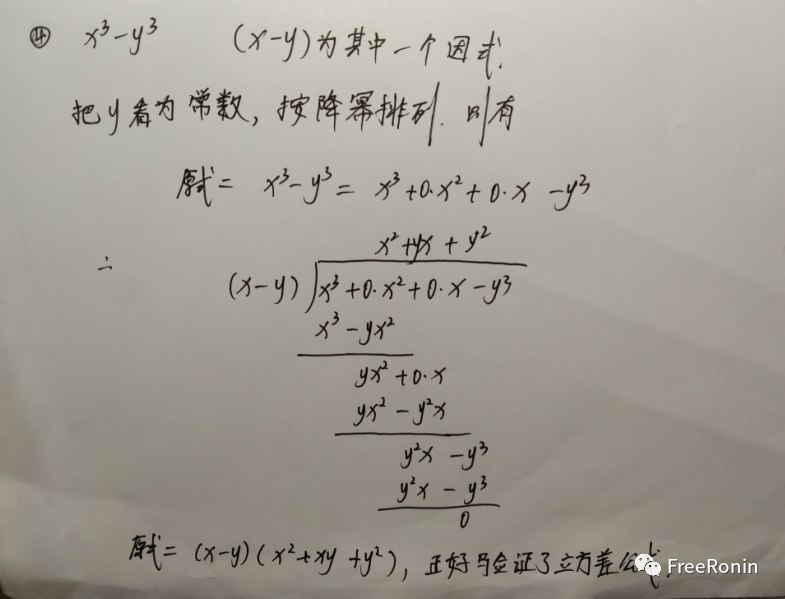 ④ x³-y³ (x-y)为其中一个因式.
把y看为常数,按降幂排列.则有
原式= x³-y³= x³+0·x²+0·x -y³
∴ x²+yx+y²
(x-y) x³+0·x²+0·x-y³
x³-yx²
yx²+0·x
yx²-y²x
y²x -y³
y²x - y³
0
原式= (x-y)(x²+xy+y²),正好验证了立方差公式.
FreeRonin